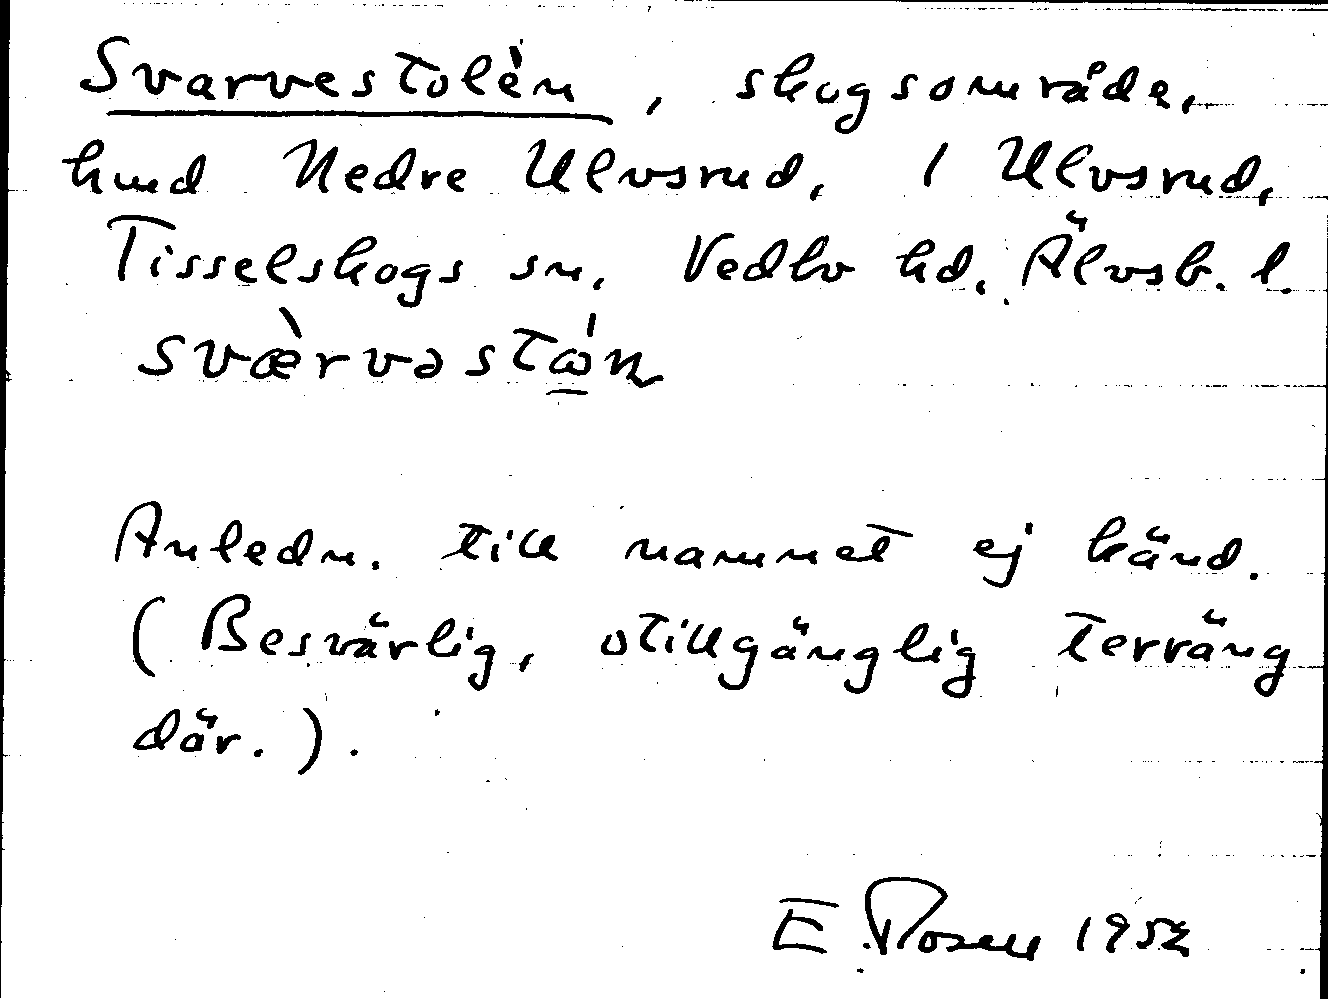 Svarvestolèn, skogsområde,
hmd Nedre Ulvsrud, 1 Ulvsrud,
Tisselskogs sn, Vedbo hd, Älvsb. l.
svæ̀rvəstώ̲n
Anledn. till namnet ej känd.
(Besvärlig, otillgänglig terräng
där.).
E. Rosell 1952